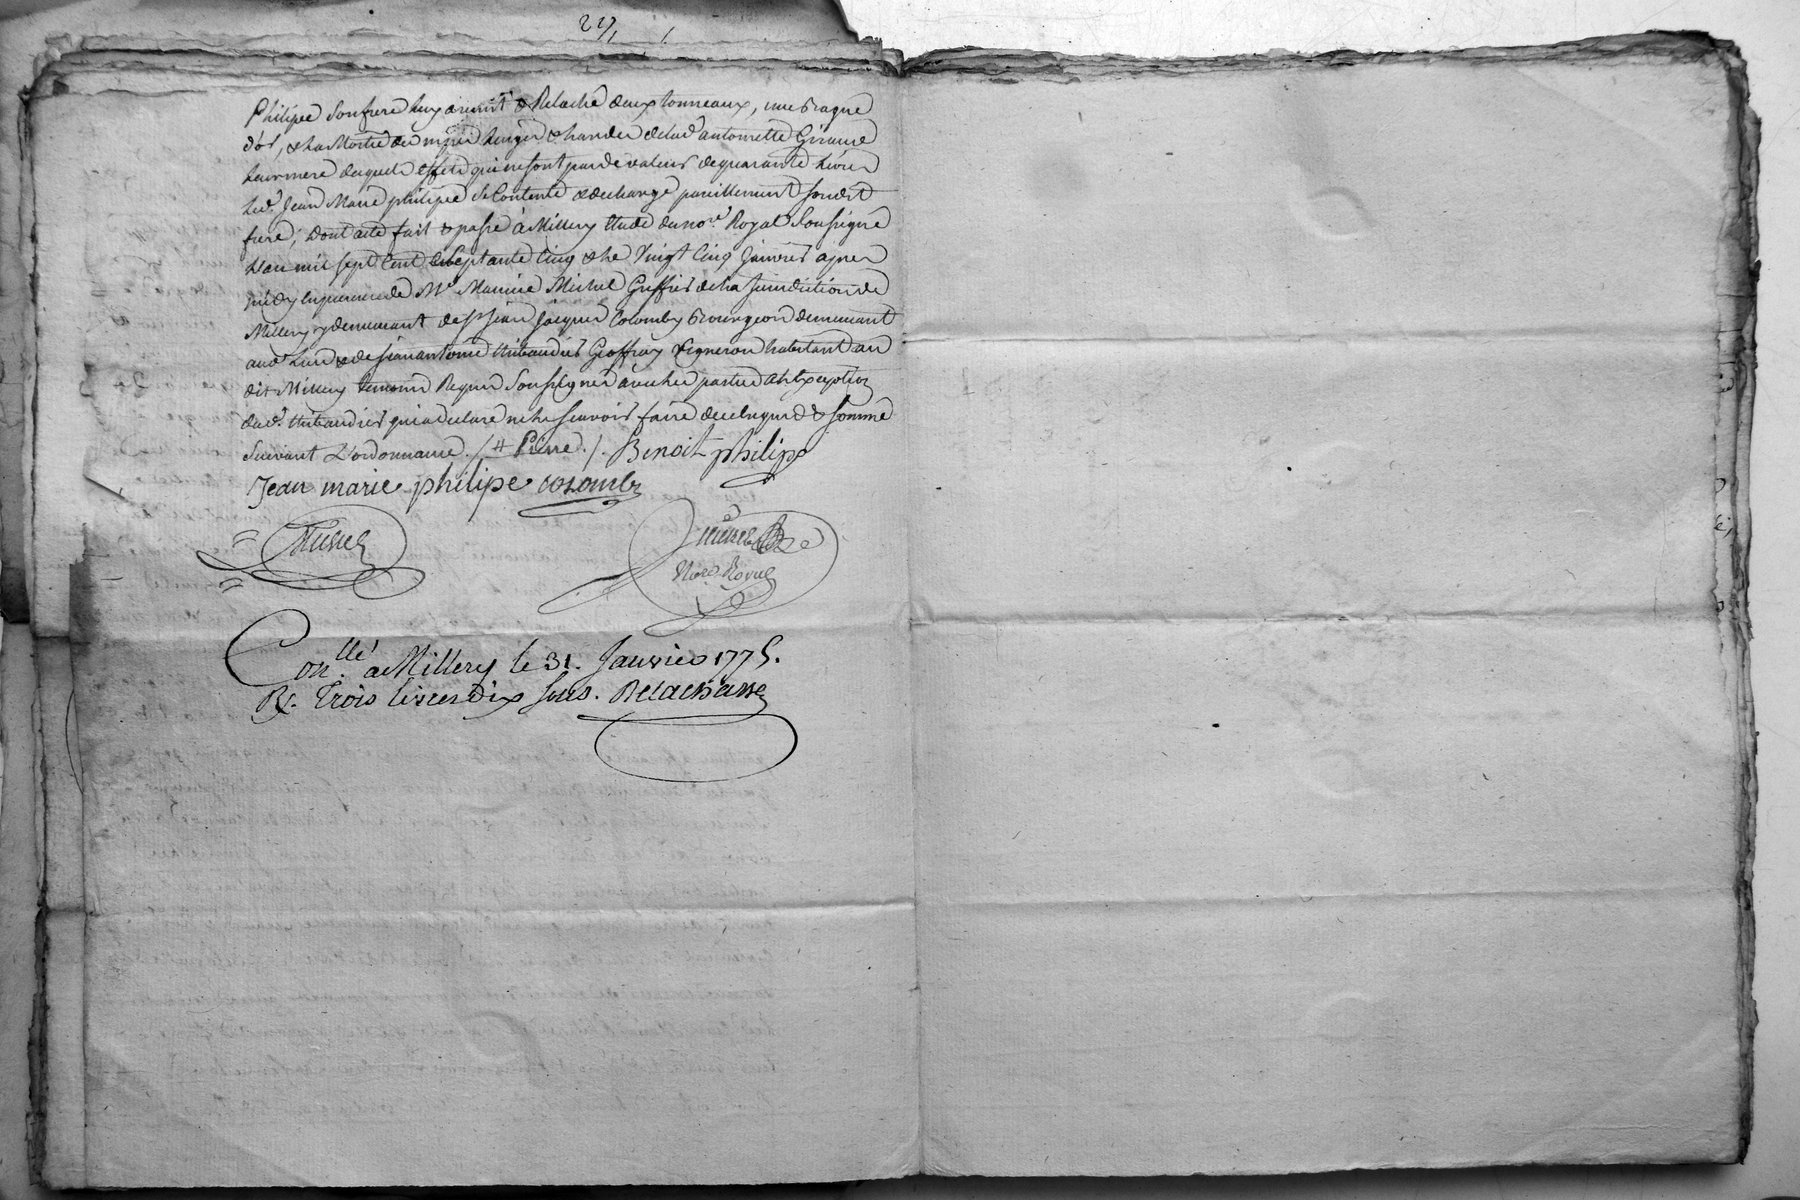 Philipe Son frere luy avoir Relaché deux tonneaux, une Bague
d'or, & la Moitié des menu linger & hardes de lad.e antoinette Giraud
leur mere desquels effets qui ne sont pas de valeur de quarante livres
led.t Jean Marie philipe Se Contente & decharge pareillement Sondit
frere, Dont acte fait & passé à Millery Etude du no.re Royal Soussigné
L'an mil sept Cent Septante Cinq & le Vingt Cinq Janvier apres
midy en presence de M.e Maurice Michel Greffier de la Jurisdiction de
Millery y demeurant de s.r Jean Jacques Colomby Bourgeois demeurant
aud. lieu & de Jean antoine thibaudier Geoffray Vigneron habitant au
dit Millery temoins Requis Soussignés avec les parties a l'Exception
dud.t thibaudier qui a declaré ne le scavoir faire de ce Enquis & Sommé
Suivant L'ordonnance. /# Pierre./. Benoit philipe
Jean marie philipe colomby
Michel
Not.re Royal
Con.llé a Millery le 31. Janvier 1775.
R. Trois livres Dix Sols. Delachasse